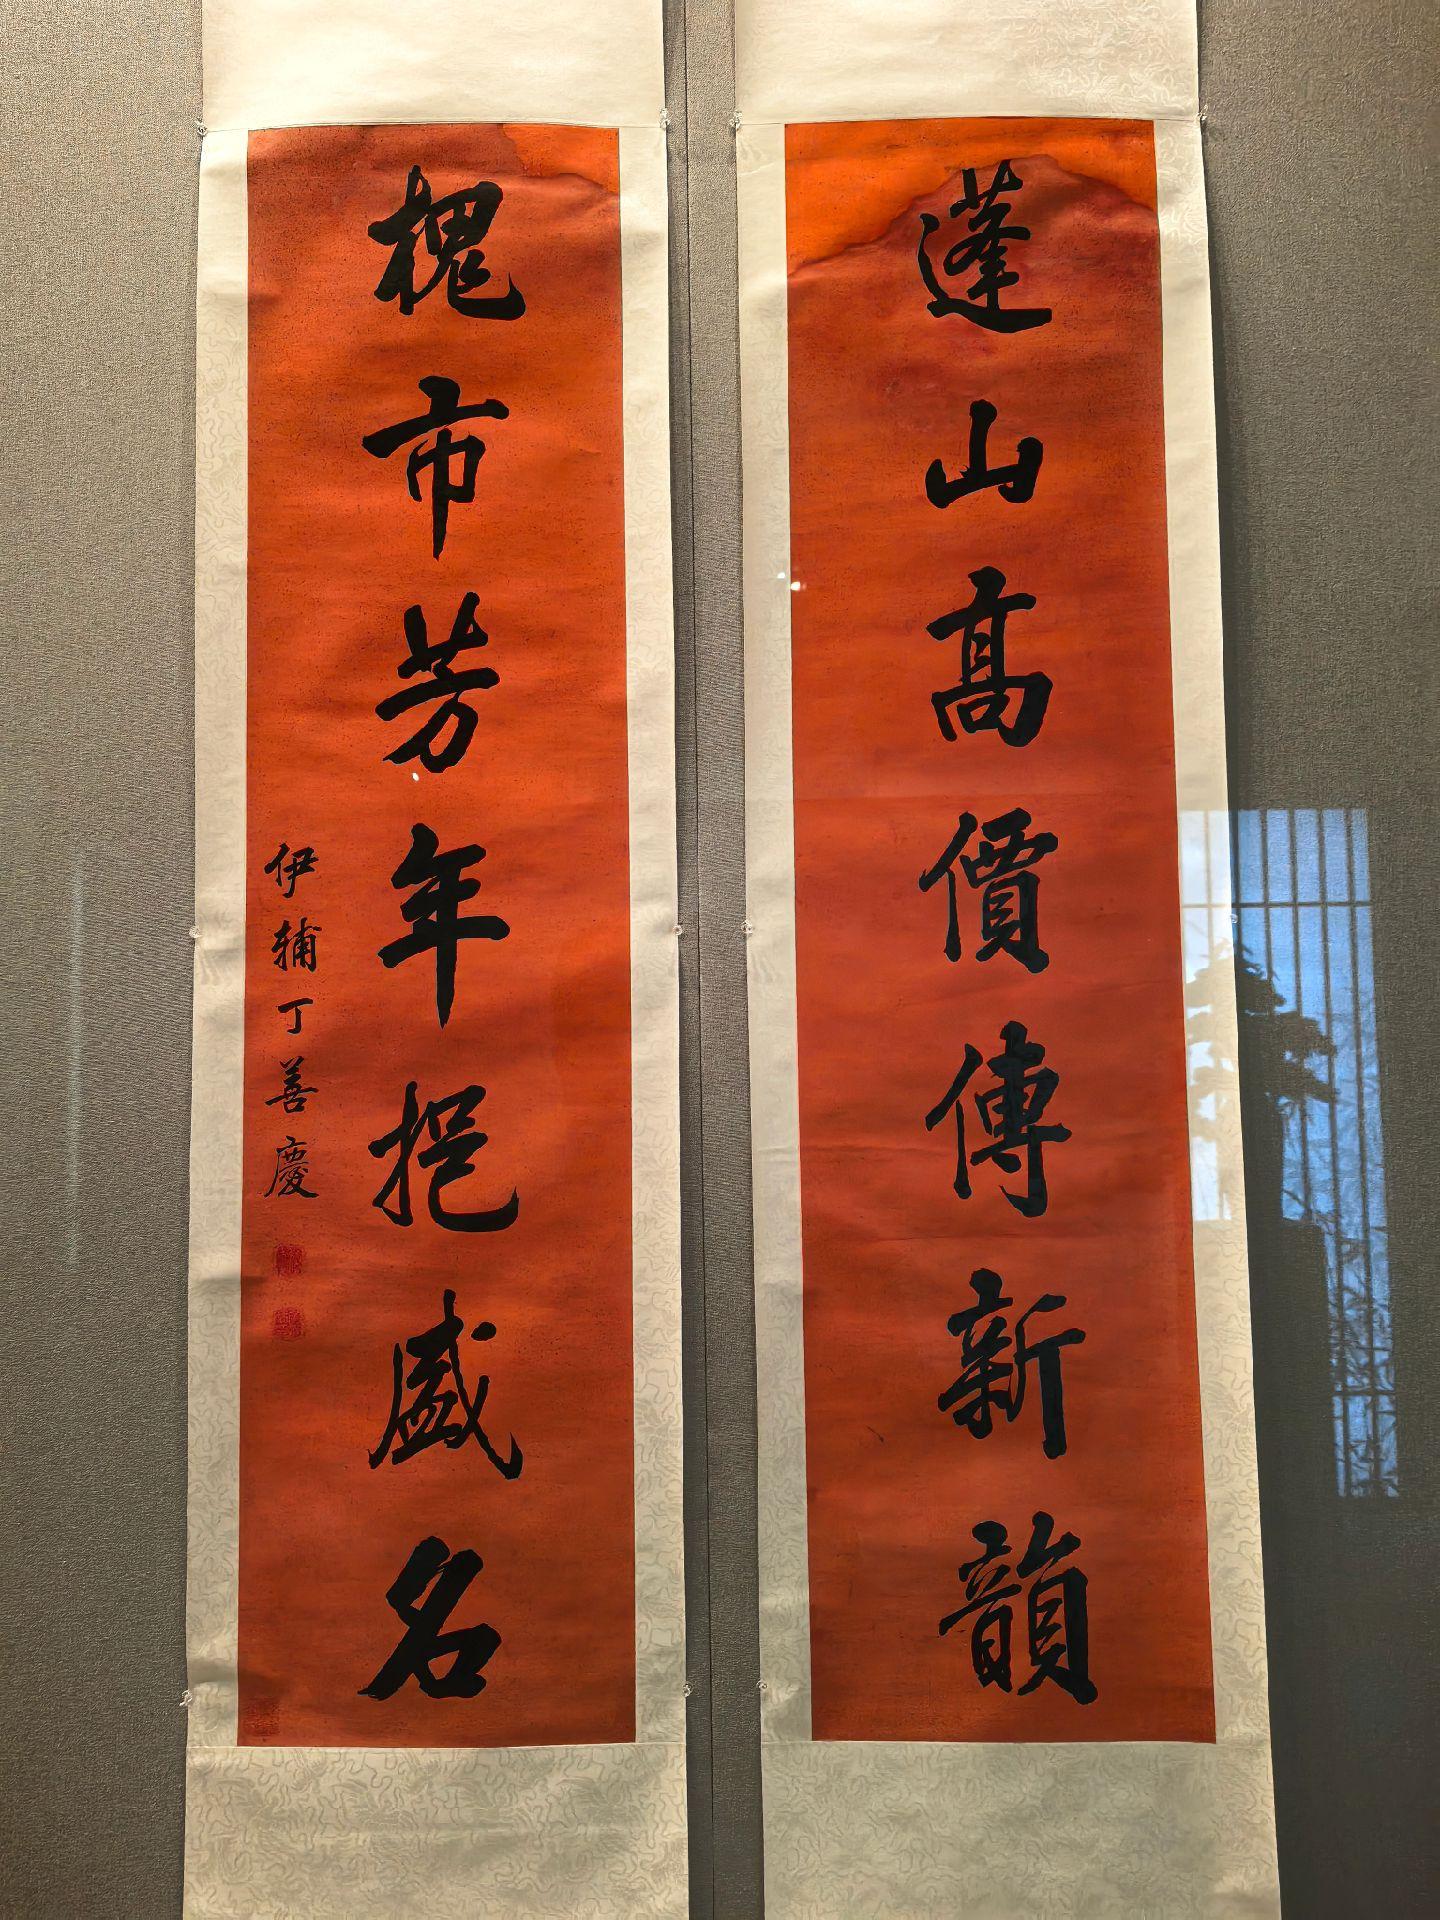 蓬山高價傳新韻
槐市芳年挹盛名
伊輔丁善慶